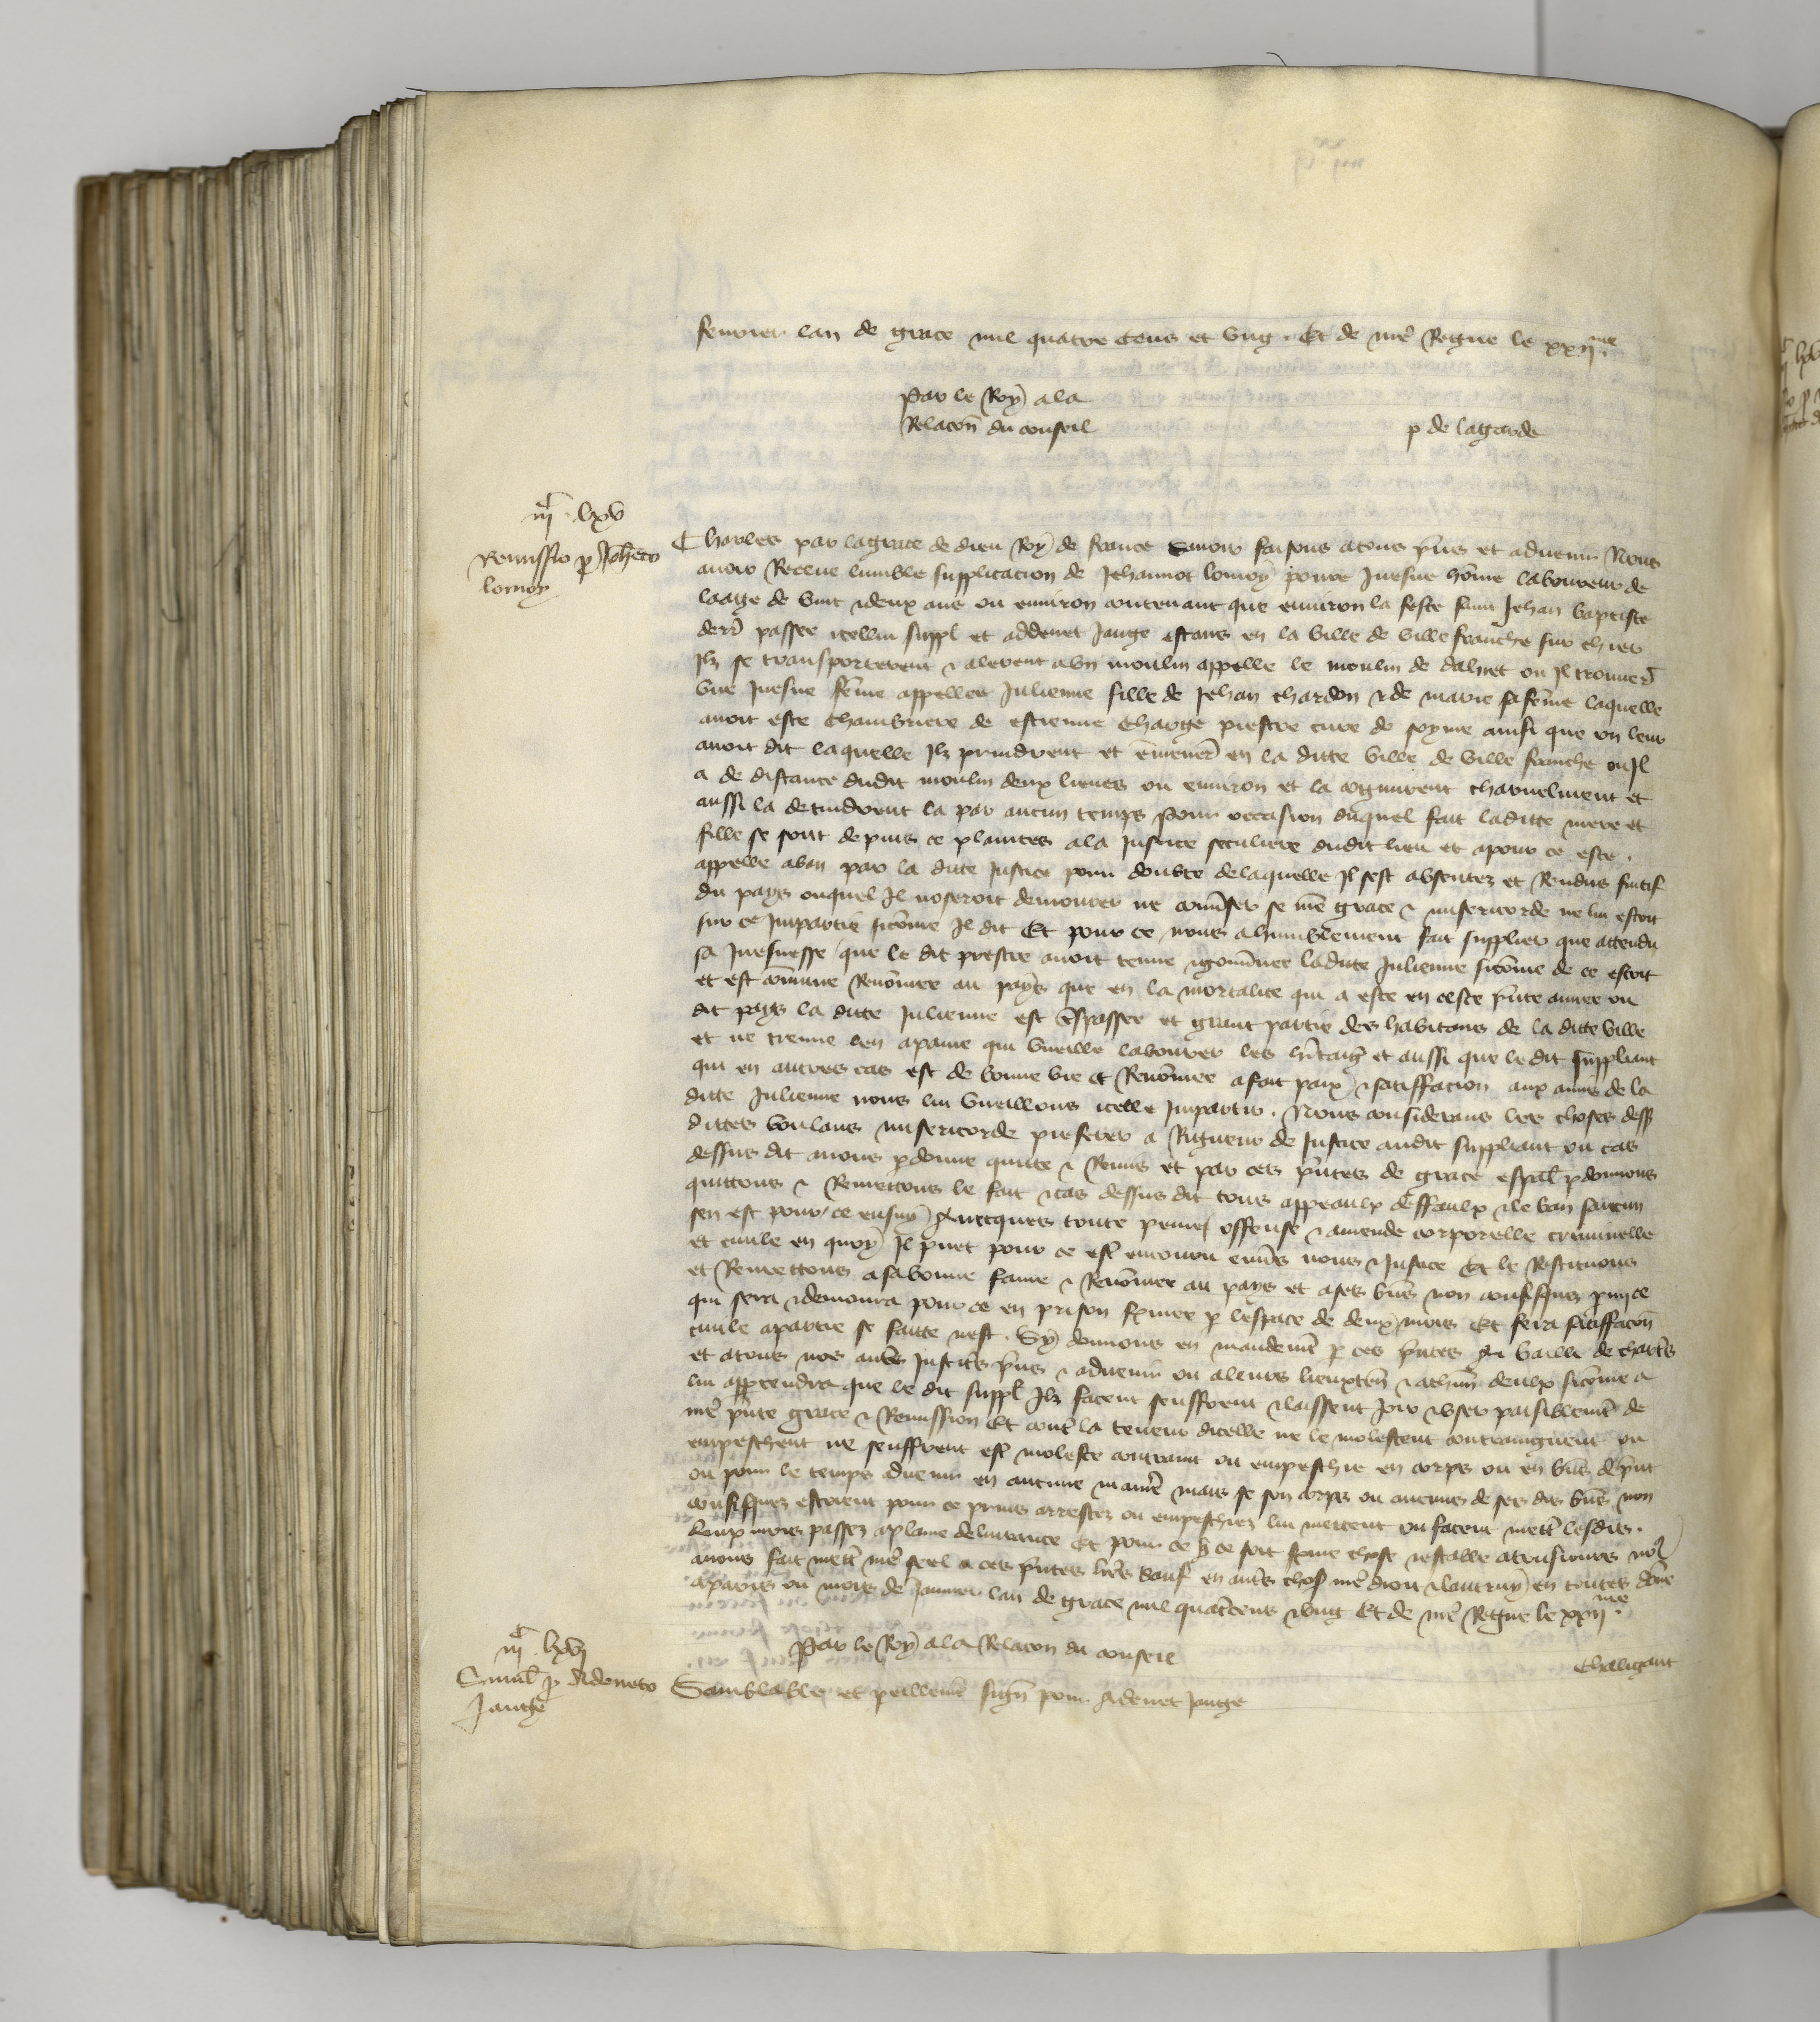 feurier lan de grace mil quatre cens et vng. Et de nr̄e Regne le xxij me.
Par le Roy a la
Relacōn du conseil
p de lagarde
iijc lxv
Remissio p Joh̄eto
lomoy
Charles par la grace de dieu Roy de france Sauoir faisons a tous p̄ns et aduenir Nous
auoir Receue lumble supplicacion de Jehannot lomoy poure Juesne hōme laboureur de
laage de vint & deux ans ou enuiron contenant que enuiron la feste saint Jehan baptiste
derr̄ passee icellui suppl̄ et addenet Jauge estans en la ville de ville franche sur chier
Ilz se transporterent & alerent a vn moulin appelle le moulin de dalnet ou Il trouuer̄
vne Juesne fēme appellee Julienne fille de Jehan chardon & de marie sa fēme laquelle
auoit este chambriere de estienne charge prestre cure de soyme ainsi que on leur
auoit dit laquelle Ilz prindrent et ēmener̄ en la ditte ville de ville franche ou Il
a de distance dudit moulin deux lieues ou enuiron et la cognurent charnelment et
aussi la detindrent la par aucun temps pour occasion duquel fait laditte mere et
fille se sont depuis ce plaintes a la Justice seculiere dudit lieu et a pour ce este
appelle a ban par la ditte Justice pour doubte de laquelle Il sest absentez et Rendus fuitif
du pays ouquel Il noseroit demourer ne conūser se nr̄e grace & misericorde ne lui estoit
sur ce Impartie sicōme Il dit Et pour ce nous a humblement fait supplier que attendu
sa Juesnesse que le dit prestre auoit tenue & gouūnee laditte Julienne sicōme de ce estoit
et est cōmune Renōmee au pays que en la mortalite qui a este en ceste p̄nte annee ou
dit pays la ditte Julienne est t̄spassee et grant partie des habitans de la ditte ville
et ne treuue len a paine qui vueille labourer les h̄itaiḡ et aussi que le dit suppliant
qui en autres cas est de bonne vie et Renōmee a fait paix & satisfacion aux amis de la
ditte Julienne nous lui vueillons icelle Impartir. Nous considerans les choses dess̄
dittes voulans misericorde preferer a Rigueur de Justice audit suppliant ou cas
dessus dit auons p̄donne quitte & Remis et par ces p̄ntes de grace esp̄al p̄donnons
quittons & Remettons le fait & cas dessus dit tous appeaulx deffaulx & le ban saucun
sen est pour ce ensuy Auecques toute peine offense & amende corporelle criminelle
et ciuile en quoy Il puet pour ce est̄ encouru enuēs nous & Justice Et le Restituons
et Remettons a sa bonne fame & Renōmee au pays et a ses biēs non confisquez p̄my ce
qui sera & demourra pour ce en prison fermee p̄ lespace de deux mois Et fera satisfacōn
ciuile a partie se faitte nest. Sy donnons en mandemēt p̄ ces p̄ntes Au bailli de chart̄s
et a tous nos aut̄s Justic̄s p̄ns & aduenir ou a leurs lieuxten̄ & a ch̄un deulx sicōme a
lui app̄tendra que le dit suppl̄ Ilz facent seuffrent & laissent Joir & vser paisiblemēt de
nr̄e p̄nte grace & Remission Et cont̄ la teneur dicelle ne le molestent contraingnent ou
empeschent ne seuffrent est̄ moleste contraint ou empeschie en corps ou en biēs de p̄nt
ou pour le temps aduenir en aucune manie᷑ mais se son corps ou aucuns de ses dis biēs non
confisquez estoient pour ce prins arrestez ou empeschiez lui mettent ou facent mett̄ lesdis
deux mois passez a plaine deliurance Et pour ce q̄ ce soit ferme chose & estable a tousiours no᷑
auons fait mett̄ nr̄e seel a ces p̄ntes lr̄es Sauf en aut̄s chos̄ nr̄e droit & lautruy en toutes Dōne
a paris ou mois de Januier lan de grace mil quat̄cens & vng Et de nr̄e Regne le xxij me.
Par le Roy a la Relacon du conseil
Chaligaut
iijc lxvj
Simil̄ p̄ Adeneto
Jauge
Samblable et pareillemēt sign̄ pour Adenet Jauge